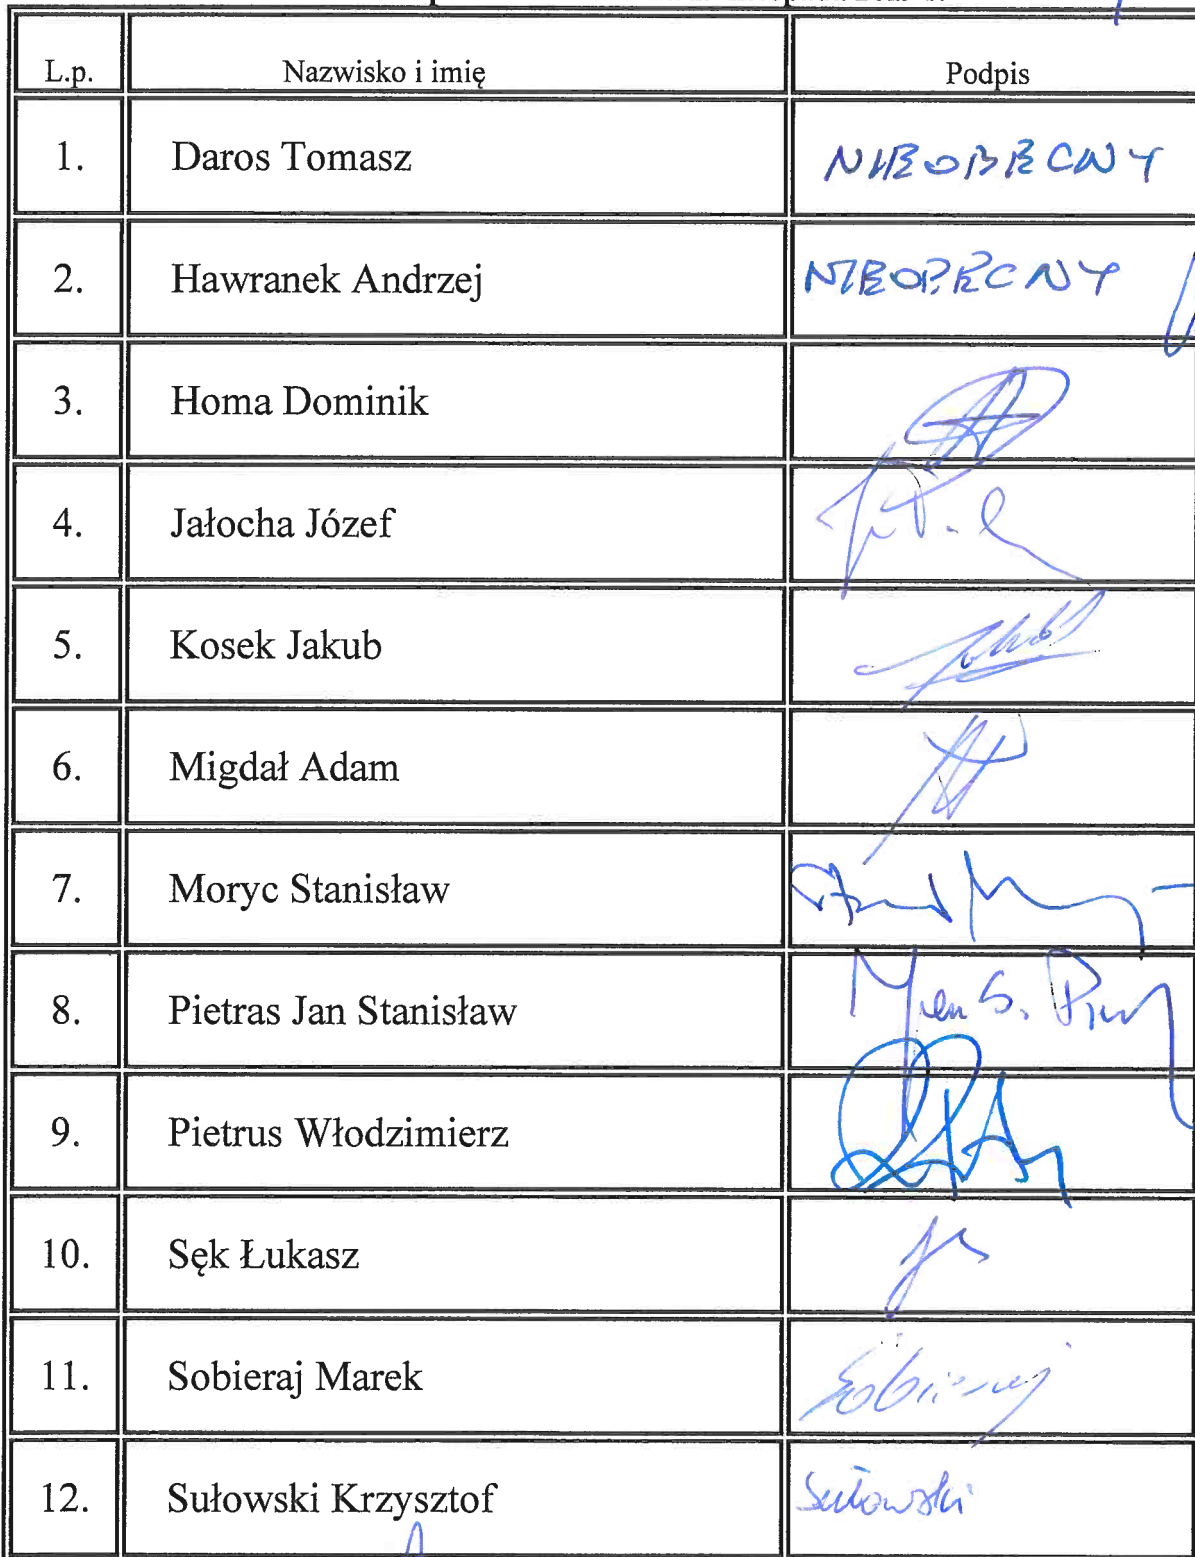 L.p. Nazwisko i imię Podpis
1. Daros Tomasz NIEOBECNY
2. Hawranek Andrzej NIEOBECNY
3. Homa Dominik
4. Jałocha Józef
5. Kosek Jakub
6. Migdał Adam
7. Moryc Stanisław
8. Pietras Jan Stanisław
9. Pietrus Włodzimierz
10. Sęk Łukasz
11. Sobieraj Marek Sobieraj
12. Sułowski Krzysztof Sułowski